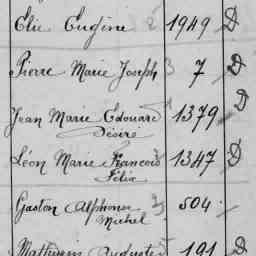 Elie Eugène 2 1949 D
Pierre Marie Joseph 3 7 D
Jean Marie Edouard 1 1379 D
Désiré
Léon Marie François 3 1347 D
Félix
Gaston Alphonse 3 504
Michel
Mathurin Auguste 191 D